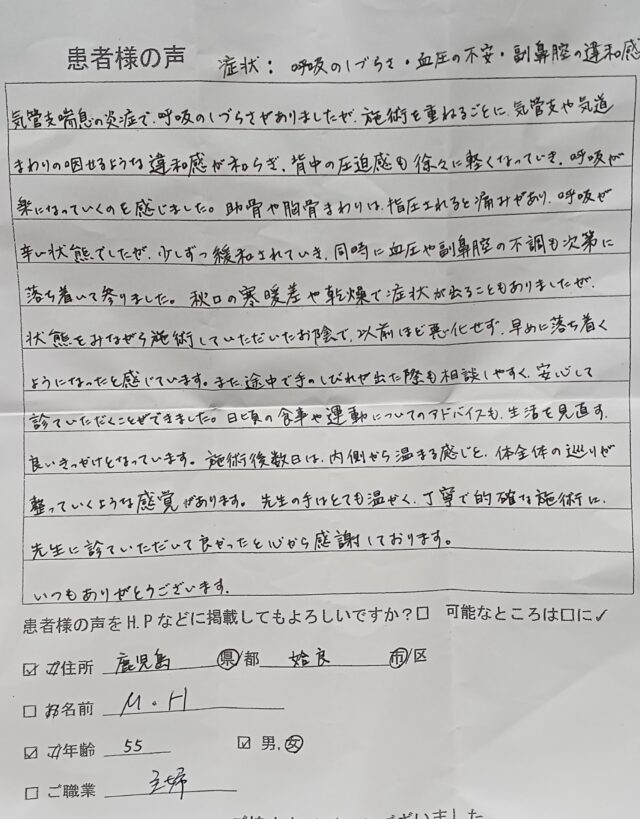 患者様の声 症状： 呼吸のしづらさ・血圧の不安・副鼻腔の違和感
気管支喘息の炎症で、呼吸のしづらさがありましたが、施術を重ねるごとに、気管支や気道
まわりの咽せるような違和感が和らぎ、背中の圧迫感も徐々に軽くなっていき、呼吸が
楽になっていくのを感じました。肋骨や胸骨まわりは、指圧されると痛みがあり、呼吸が
辛い状態でしたが、少しずつ緩和されていき、同時に血圧や副鼻腔の不調も次第に
落ち着いて参りました。秋口の寒暖差や乾燥で症状が出ることもありましたが、
状態をみながら施術していただいたお陰で、以前ほど悪化せず、早めに落ち着く
ようになったと感じています。また途中で手のしびれが出た際も相談しやすく、安心して
診ていただくことができました。日頃の食事や運動についてのアドバイスも、生活を見直す、
良いきっかけとなっています。施術後数日は、内側から温まる感じと、体全体の巡りが
整っていくような感覚があります。先生の手はとても温かく、丁寧で的確な施術に、
先生に診ていただいて良かったと心から感謝しております。
いつもありがとうございます。
患者様の声をH.Pなどに掲載してもよろしいですか？□ 可能なところは□に✓
☑ ご住所 鹿児島 県/都 姶良 市/区
□ お名前 M.H
☑ ご年齢 55 ☑ 男.女
□ ご職業 主婦